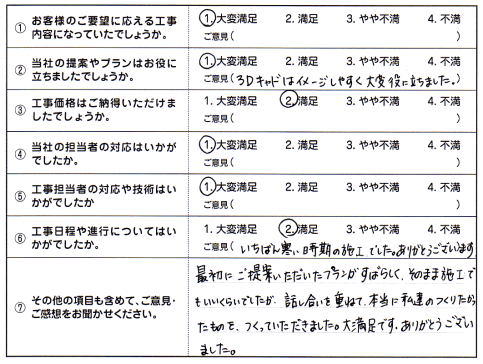 ① お客様のご要望に応える工事 1. 大変満足 2. 満足 3. やや不満 4. 不満
内容になっていたでしょうか。 ご意見( )
② 当社の提案やプランはお役に 1. 大変満足 2. 満足 3. やや不満 4. 不満
立ちましたでしょうか。 ご意見(3Dキャドはイメージしやすく大変役に立ちました。)
③ 工事価格はご納得いただけま 1. 大変満足 2. 満足 3. やや不満 4. 不満
したでしょうか。 ご意見( )
④ 当社の担当者の対応はいかが 1. 大変満足 2. 満足 3. やや不満 4. 不満
でしたか。 ご意見( )
⑤ 工事担当者の対応や技術はい 1. 大変満足 2. 満足 3. やや不満 4. 不満
かがでしたか ご意見( )
⑥ 工事日程や進行についてはい 1. 大変満足 2. 満足 3. やや不満 4. 不満
かがでしたか。 ご意見(いちばん寒い時期の施工でした。ありがとうございます
⑦ その他の項目も含めて、ご意見・
ご感想をお聞かせください。
最初にご提案いただいたプランがすばらしく、そのまま施工で
もいいくらいでしたが、話し合いを重ねて、本当に私達のつくりたかっ
たものを、つくっていただきました。大満足です。ありがとうござい
ました。